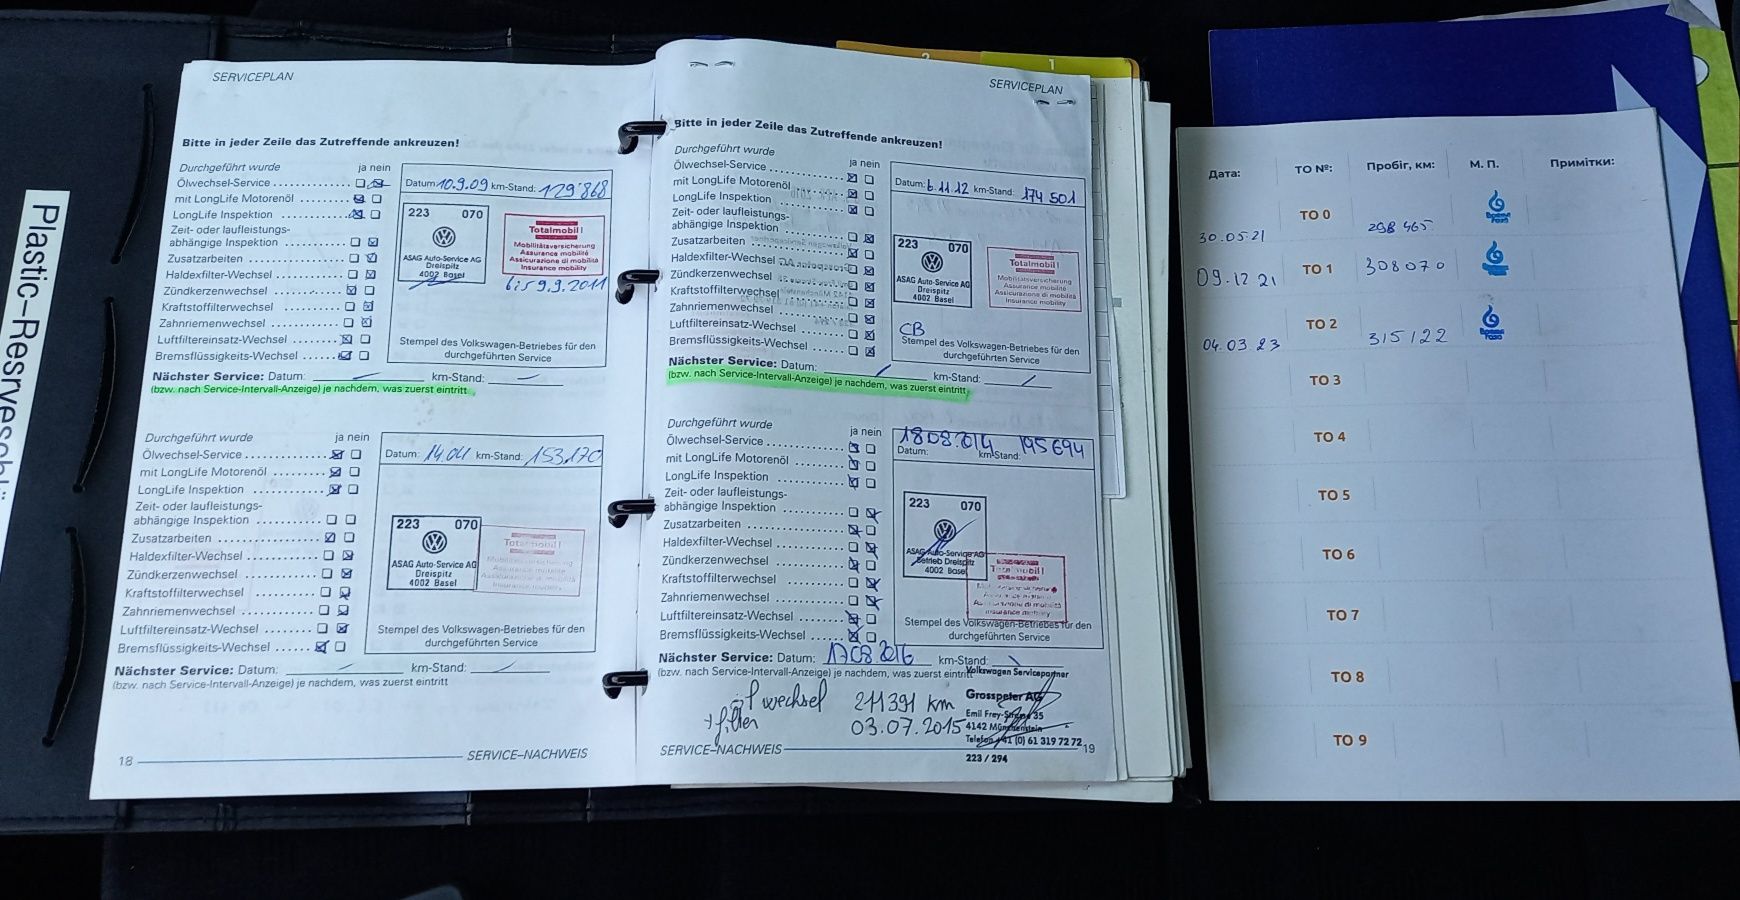 Plastic–Resrveschl
SERVICEPLAN
Bitte in jeder Zeile das Zutreffende ankreuzen!
Durchgeführt wurde ja nein
Ölwechsel-Service
mit LongLife Motorenöl
LongLife Inspektion
Zeit- oder laufleistungs-
abhängige Inspektion
Zusatzarbeiten
Haldexfilter-Wechsel
Zündkerzenwechsel
Kraftstoffilterwechsel
Zahnriemenwechsel
Luftfiltereinsatz-Wechsel
Bremsflüssigkeits-Wechsel
Datum: 10.9.09 km-Stand: 129'868
223 070
ASAG Auto-Service AG
Dreispitz
4002 Basel
Totalmobil!
Mobilitätsversicherung
Assurance mobilité
Assicurazione di mobilità
Insurance mobility
bis 9.9.2011
Stempel des Volkswagen-Betriebes für den
durchgeführten Service
Nächster Service: Datum: km-Stand:
(bzw. nach Service-Intervall-Anzeige) je nachdem, was zuerst eintritt
Durchgeführt wurde ja nein
Ölwechsel-Service
mit LongLife Motorenöl
LongLife Inspektion
Zeit- oder laufleistungs-
abhängige Inspektion
Zusatzarbeiten
Haldexfilter-Wechsel
Zündkerzenwechsel
Kraftstoffilterwechsel
Zahnriemenwechsel
Luftfiltereinsatz-Wechsel
Bremsflüssigkeits-Wechsel
Datum: 14.04 km-Stand: 153.170
223 070
ASAG Auto-Service AG
Dreispitz
4002 Basel
Totalmobil!
Mobilitätsversicherung
Assurance mobilité
Assicurazione di mobilità
Insurance mobility
Stempel des Volkswagen-Betriebes für den
durchgeführten Service
Nächster Service: Datum: km-Stand:
(bzw. nach Service-Intervall-Anzeige) je nachdem, was zuerst eintritt
18 SERVICE–NACHWEIS
SERVICEPLAN
Bitte in jeder Zeile das Zutreffende ankreuzen!
Durchgeführt wurde ja nein
Ölwechsel-Service
mit LongLife Motorenöl
LongLife Inspektion
Zeit- oder laufleistungs-
abhängige Inspektion
Zusatzarbeiten
Haldexfilter-Wechsel
Zündkerzenwechsel
Kraftstoffilterwechsel
Zahnriemenwechsel
Luftfiltereinsatz-Wechsel
Bremsflüssigkeits-Wechsel
Datum: 6.11.12 km-Stand: 174 501
223 070
ASAG Auto-Service AG
Dreispitz
4002 Basel
Totalmobil!
Mobilitätsversicherung
Assurance mobilité
Assicurazione di mobilità
Insurance mobility
CB
Stempel des Volkswagen-Betriebes für den
durchgeführten Service
Nächster Service: Datum: km-Stand:
(bzw. nach Service-Intervall-Anzeige) je nachdem, was zuerst eintritt
Durchgeführt wurde ja nein
Ölwechsel-Service
mit LongLife Motorenöl
LongLife Inspektion
Zeit- oder laufleistungs-
abhängige Inspektion
Zusatzarbeiten
Haldexfilter-Wechsel
Zündkerzenwechsel
Kraftstoffilterwechsel
Zahnriemenwechsel
Luftfiltereinsatz-Wechsel
Bremsflüssigkeits-Wechsel
18.08.2014 195694
Datum: km-Stand:
223 070
ASAG Auto-Service AG
Betrieb Dreispitz
4002 Basel
Totalmobil!
Insurance mobility
Stempel des Volkswagen-Betriebes für den
durchgeführten Service
Nächster Service: Datum: 17.08.2016 km-Stand:
(bzw. nach Service-Intervall-Anzeige) je nachdem, was zuerst eintritt
Volkswagen Servicepartner
Grosspeter AG
Emil Frey-Strasse 35
4142 Münchenstein
Telefon +41 (0) 61 319 72 72
223 / 294
Öl wechsel 211391 km
+ filter 03.07.2015
SERVICE–NACHWEIS 19
Дата: ТО №: Пробіг, км: М. П. Примітки:
30.05.21 ТО 0 298 465
09.12 21 ТО 1 308070
04.03.23 ТО 2 315122
ТО 3
ТО 4
ТО 5
ТО 6
ТО 7
ТО 8
ТО 9